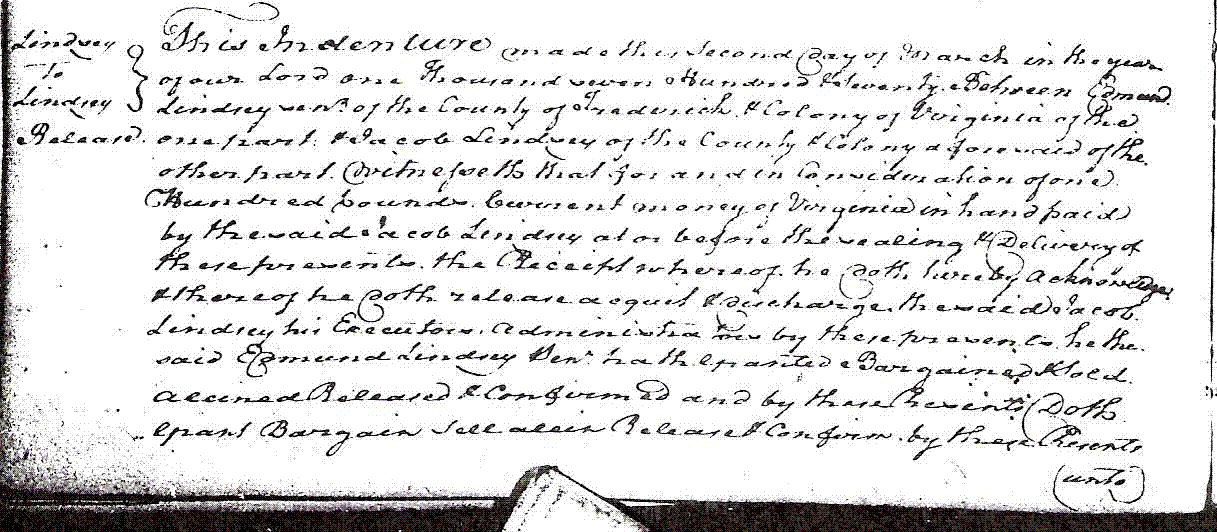 Lindsey
to
Lindsey
Release
This Indenture made this Second Day of March in the year
of our Lord one Thousand seven Hundred & Seventy. Between Edmund
Lindsey senr. of the County of Frederick & Colony of Virginia of the
one part. & Jacob Lindsey of the County & Colony aforesaid of the
other part. Witnesseth that for and in Consideration of one
Hundred pounds. Current money of Virginia in hand paid
by the said Jacob Lindsey at or before the sealing & Delivery of
these presents. the Receipt whereof. he Doth hereby Acknowledge
& thereof he Doth release acquit & discharge. the said Jacob.
Lindsey his Executors. administrators by these presents. he the.
said Edmund Lindsey Senr. hath Granted Bargained & Sold.
aliened Released & Confirmed and by these Presents Doth
Grant Bargain Sell alien Release & Confirm. by these Presents
(unto)